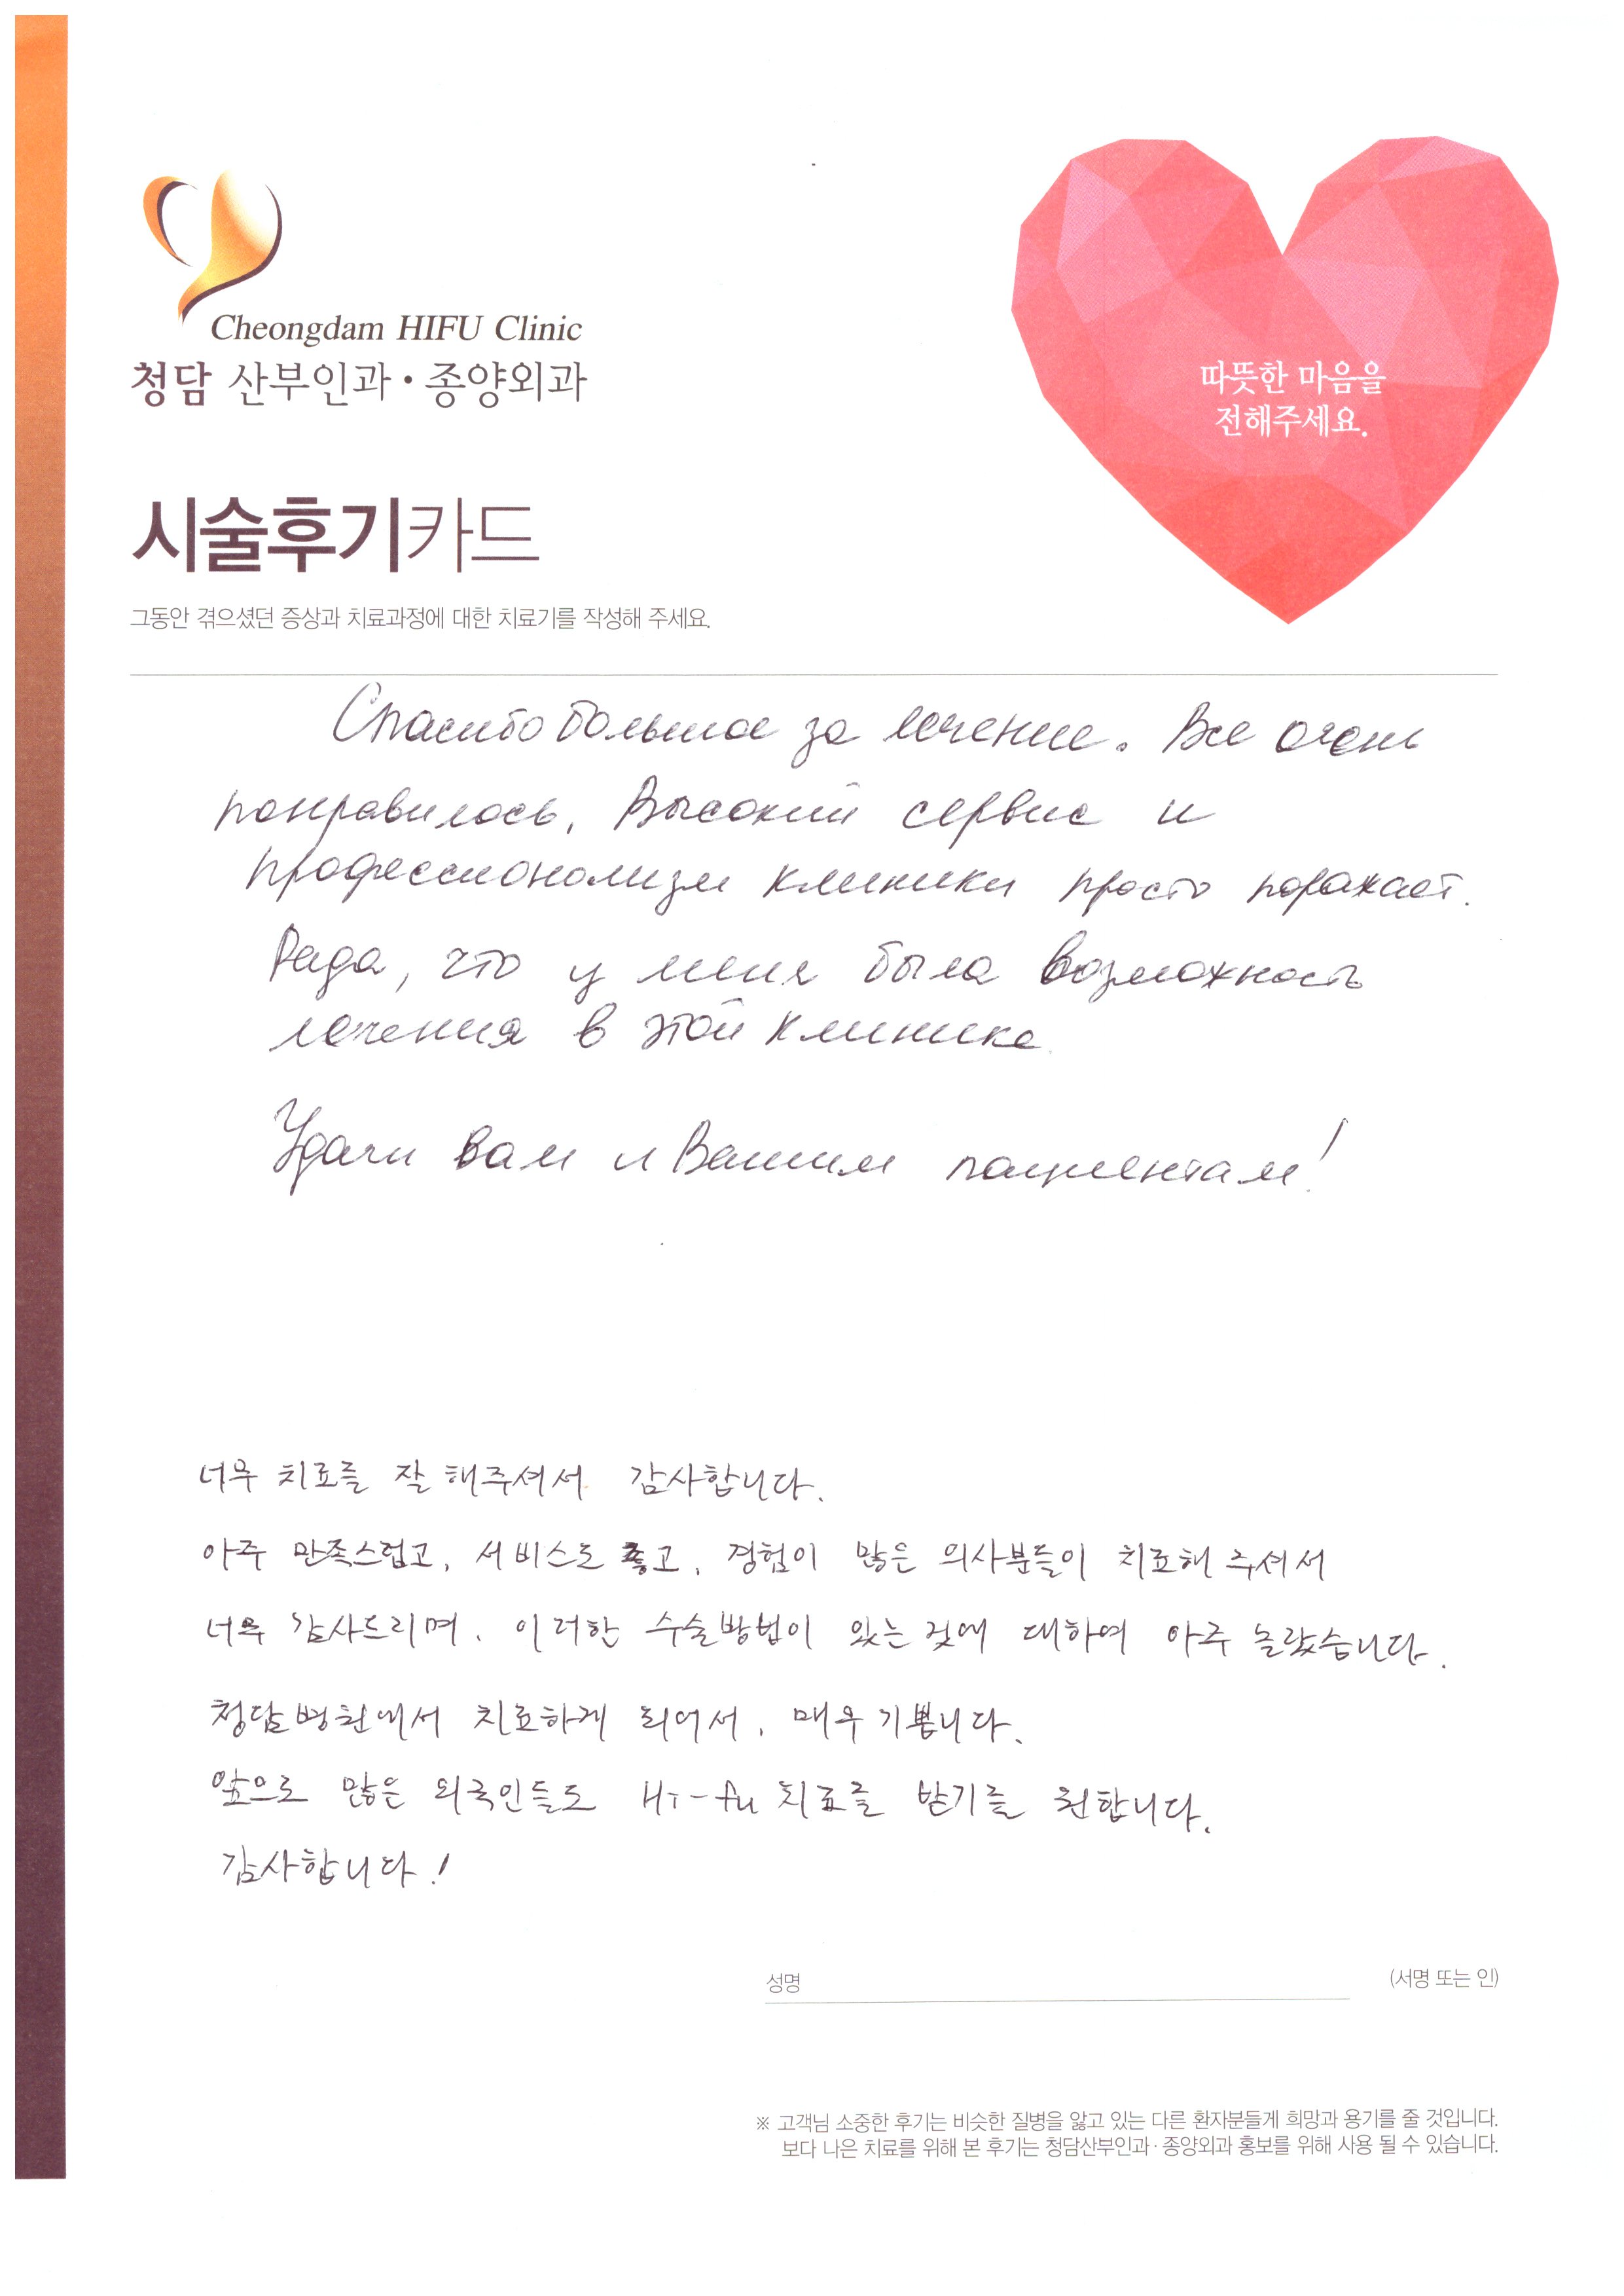 Cheongdam HIFU Clinic
청담 산부인과·종양외과
따뜻한 마음을
전해주세요.
시술후기카드
그동안 겪으셨던 증상과 치료과정에 대한 치료기를 작성해 주세요.
Спасибо большое за лечение. Все очень
понравилось. Высокий сервис и
профессионализм клиники просто поражает.
Рада, что у меня была возможность
лечения в этой клинике.
Удачи вам и Вашим пациентам!
너무 치료를 잘 해주셔서 감사합니다.
아주 만족스럽고, 서비스도 좋고, 경험이 많은 의사분들이 치료해 주셔서
너무 감사드리며, 이러한 수술방법이 있는 것에 대하여 아주 놀랐습니다.
청담병원에서 치료하게 되어서, 매우 기쁩니다.
앞으로 많은 외국인들도 Hi-fu 치료를 받기를 원합니다.
감사합니다!
성명 (서명 또는 인)
※ 고객님 소중한 후기는 비슷한 질병을 앓고 있는 다른 환자분들게 희망과 용기를 줄 것입니다.
보다 나은 치료를 위해 본 후기는 청담산부인과·종양외과 홍보를 위해 사용 될 수 있습니다.